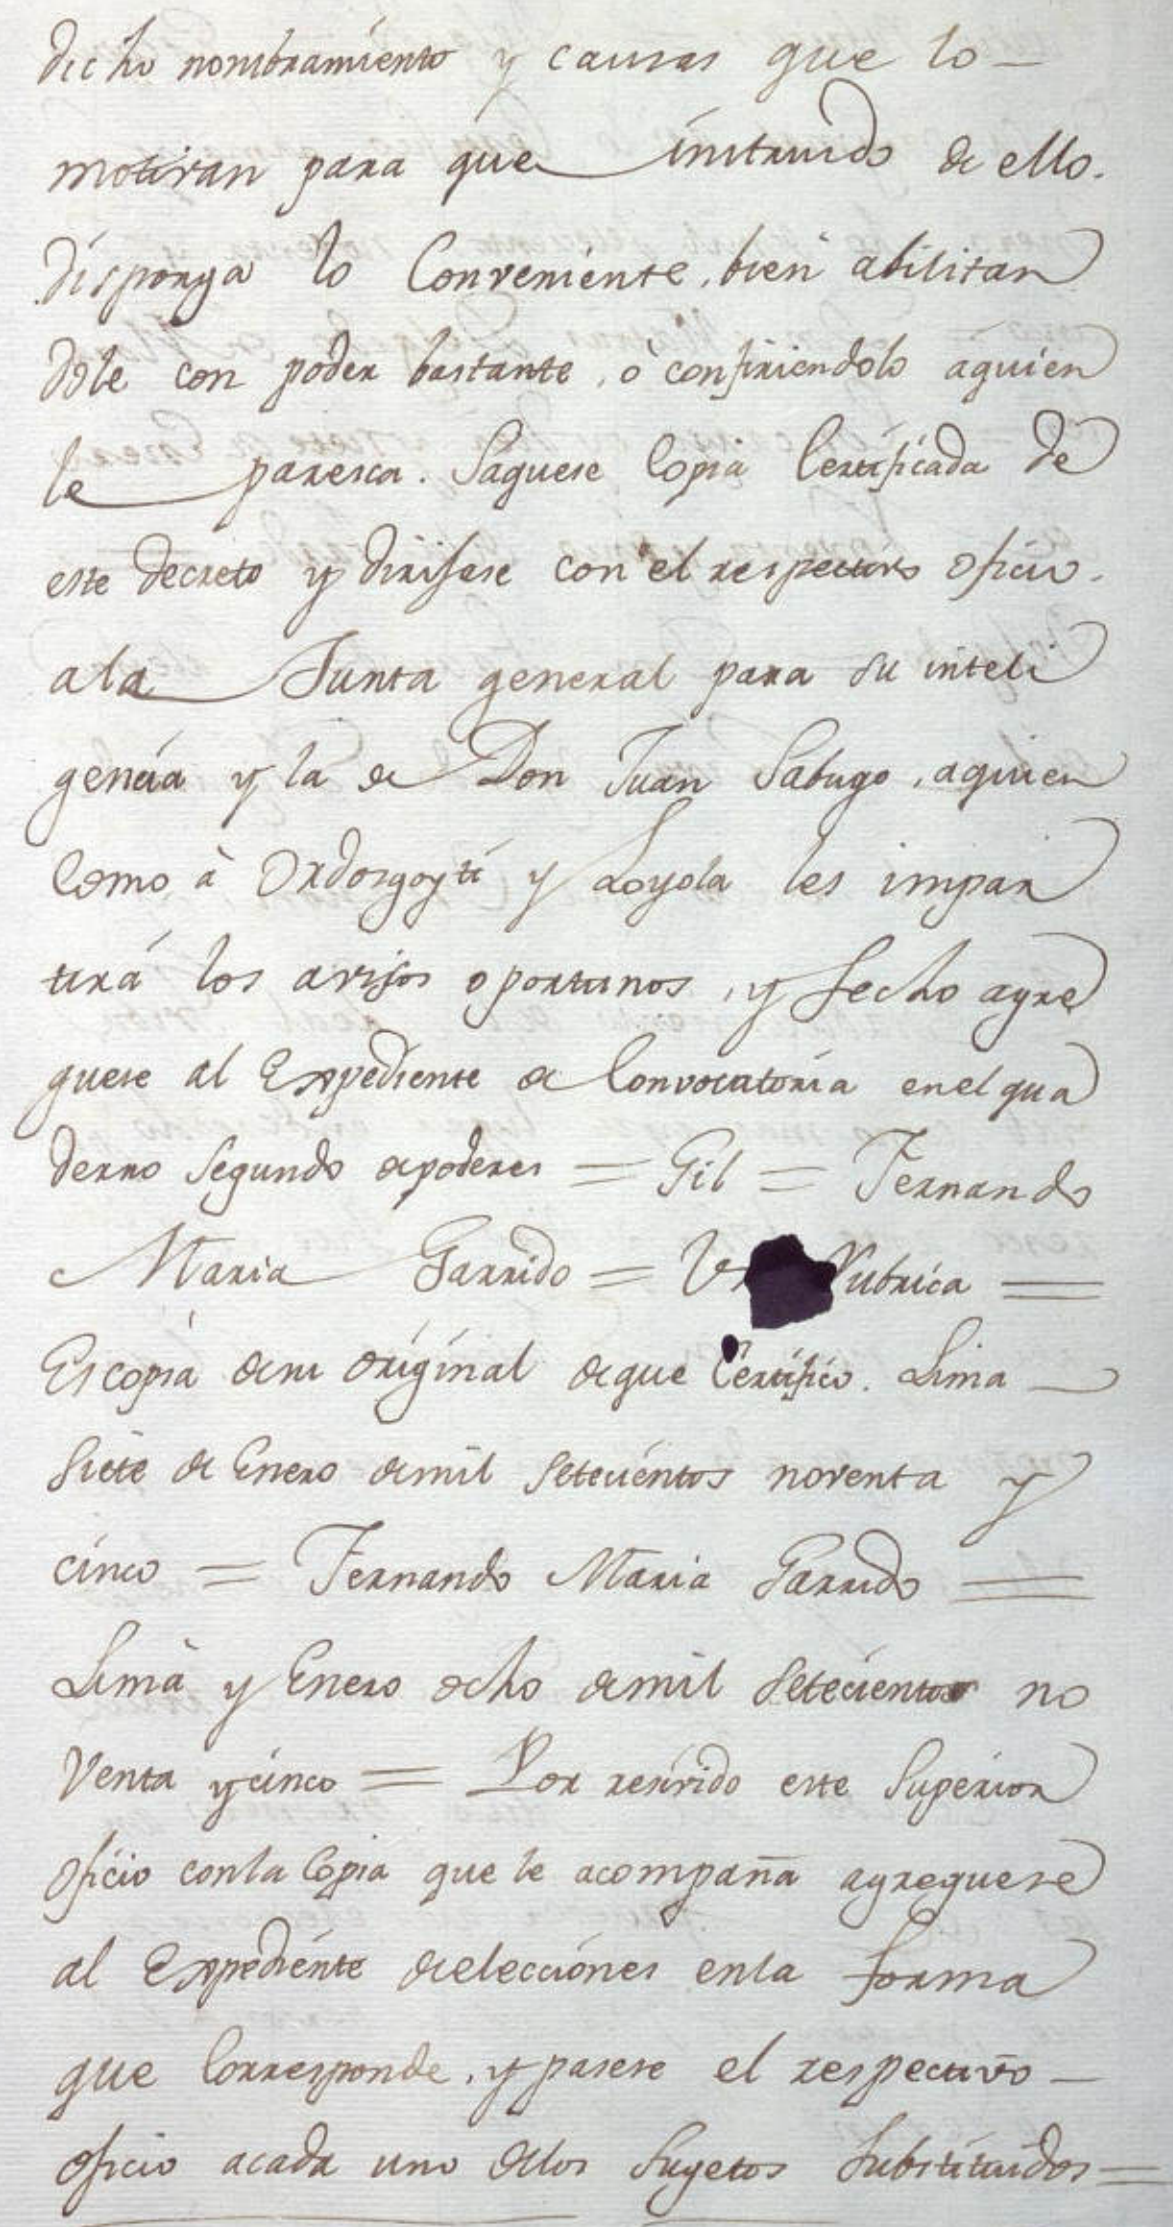 dicho nombramiento y causas que lo –
motivan para que instruido de ello.
disponga lo Conveniente, bien abilitan
dole con poder bastante, ò confiriendolo áquien
le paresca. Saquese Copia Certificada de
este decreto y dirijase con el respectivo oficio.
ala Junta general para su inteli
gencia y la de Don Juan Sabugo, aquien
Como à Ordosgoyti y Loyola les impar
tirá los avisos oportunos, y fecho agre
guese al Expediente de Convocatoria en el qua
derno Segundo de poderes = Gil = Fernando
Maria Garrido = Rubrica =
Es copia de su original de que Certifico. Lima –
Siete de Enero de mil Setecientos noventa y
cinco = Fernando Maria Garrido =
Lima y Enero ocho de mil Setecientos no
Venta y cinco = Por resivido este Superior
Oficio con la Copia que le acompaña agreguese
al Expediente de elecciones en la forma
que Corresponde, y pasese el respectivo –
oficio acada uno delos Sugetos Substituidos =